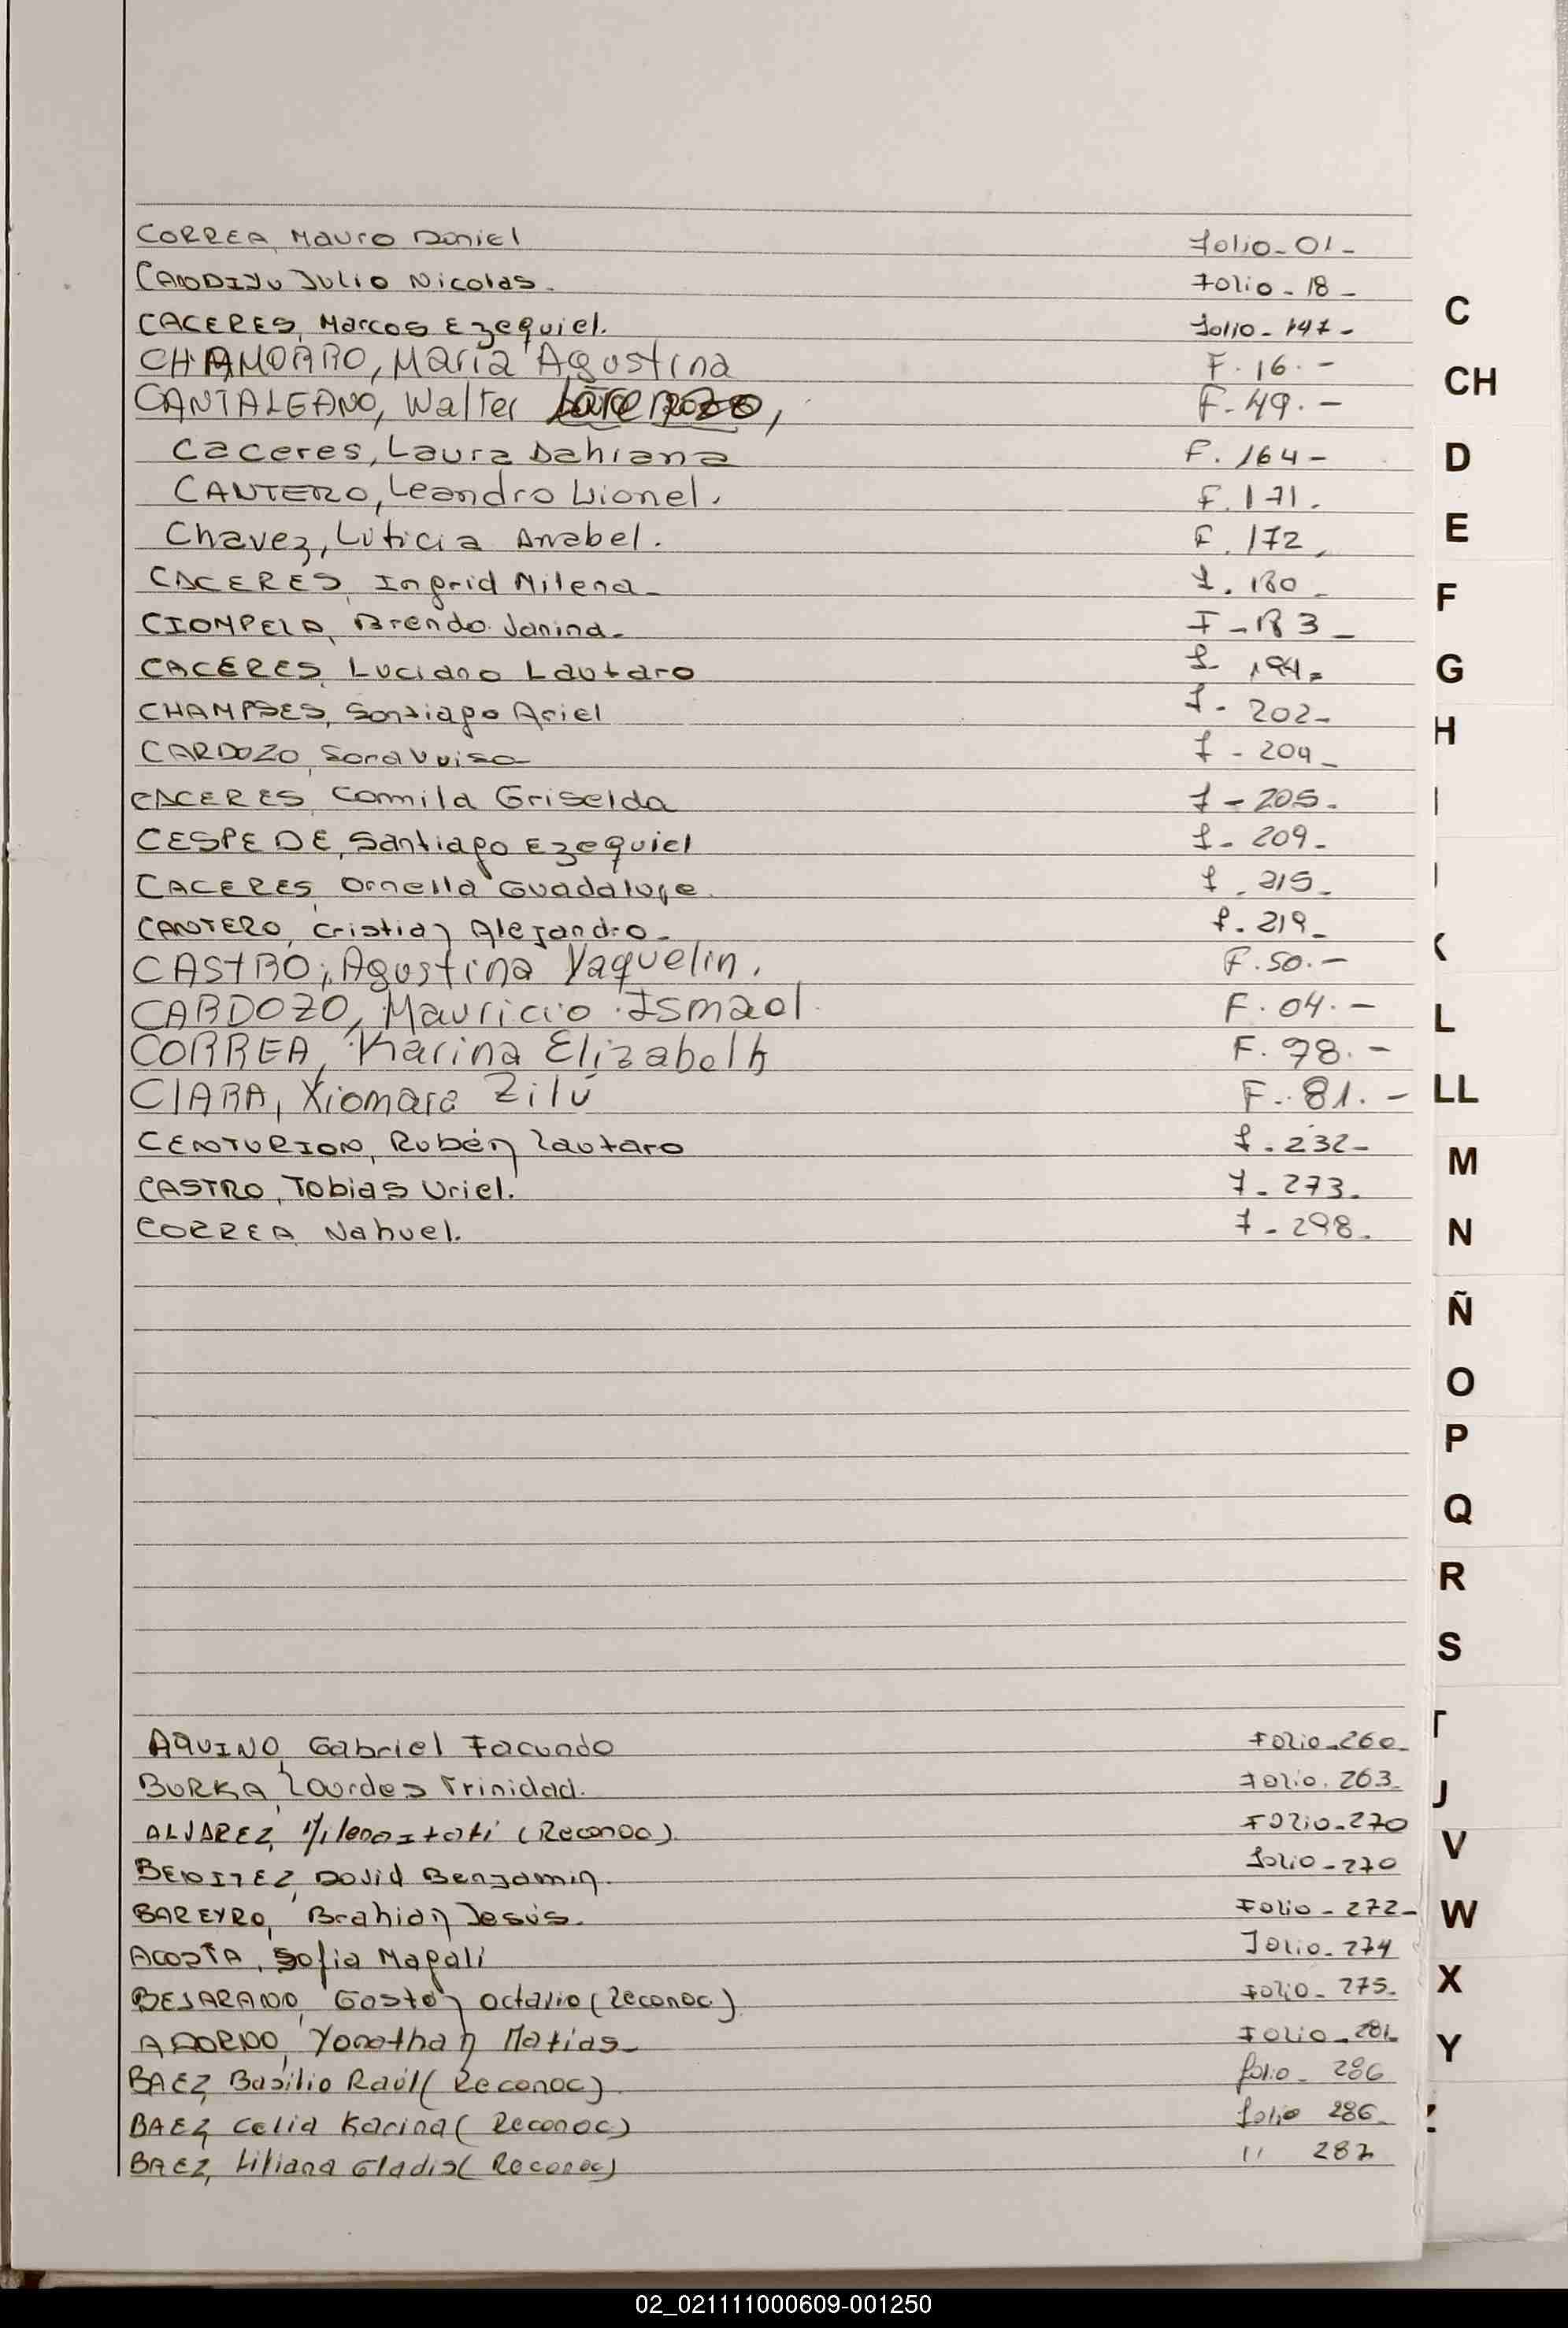 CORREA, Mauro Daniel Folio-01-
CANDIYU Julio Nicolas. Folio-18-
CACERES, Marcos Ezequiel. Folio-147-
CHAMORRO, Maria Agustina F. 16.-
CANTALEANO, Walter F-49.-
Caceres, Laura Dahiana F. 164-
CANTERO, Leandro Lionel. F. 171.
Chavez, Leticia Anabel. F. 172.
CACERES, Ingrid Milena- F. 180-
Brenda Janina- F-183-
CACERES, Luciano Lautaro F- 194-
Santiago Ariel F- 202-
CARDOZO, Sara Luisa F- 204-
CACERES, Camila Griselda F-205-
CESPEDE, Santiago Ezequiel F- 209-
CACERES, Ornella Guadalupe. F. 215-
CANTERO, Cristian Alejandro- F. 219-
CASTRO, Agustina Yaquelin. F. 50.-
CARDOZO, Mauricio Ismael F. 04.-
CORREA, Karina Elizabeth F. 98.-
CIARA, Xiomara Zilú F. 81.-
CENTURION, Rubén Lautaro F. 232-
CASTRO, Tobias Uriel. F- 273.
CORREA Nahuel. F- 298.
AQUINO, Gabriel Facundo Folio-260-
BURKA, Lourdes Trinidad. Folio. 263-
ALVAREZ, Milena Itatí (Reconoc). Folio-270
BENITEZ, David Benjamin. Folio-270
BAREYRO, Brahian Jesús. Folio-272-
ACOSTA, Sofia Magali Folio-274
BEJARANO, Gastón Octavio (Reconoc). Folio- 275-
ADORNO, Yonathan Matias- Folio-281-
BAEZ, Basilio Raúl (Reconoc). folio- 286
BAEZ, Celia Karina (Reconoc) folio 286-
BAEZ, Liliana Gladis (Reconoc) " 287
C
CH
D
E
F
G
H
I
K
L
LL
M
N
Ñ
O
P
Q
R
S
T
J
V
W
X
Y
Z
02_021111000609-001250